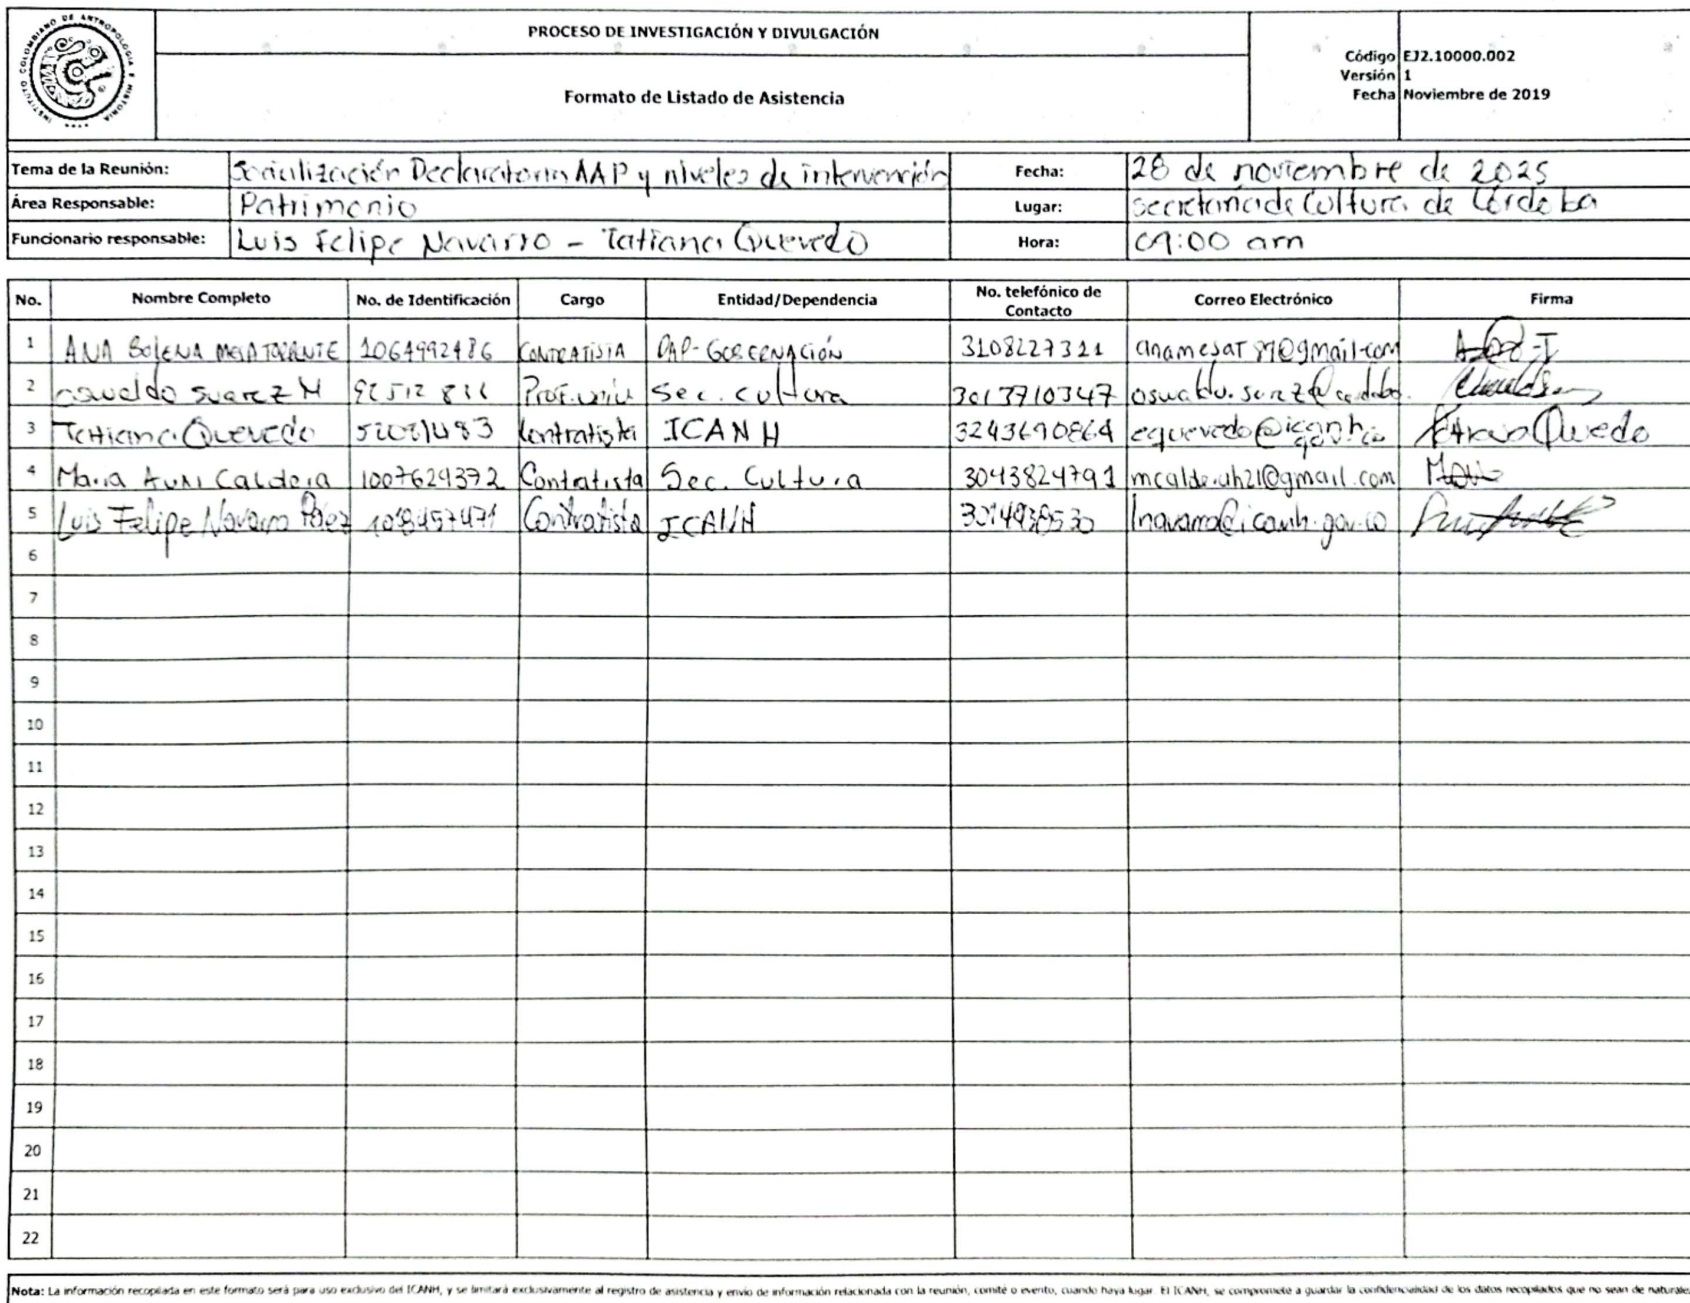 INSTITUTO COLOMBIANO DE ANTROPOLOGÍA E HISTORIA
PROCESO DE INVESTIGACIÓN Y DIVULGACIÓN
Formato de Listado de Asistencia
Código EJ2.10000.002
Versión 1
Fecha Noviembre de 2019
Tema de la Reunión: Socialización Declaratoria AAP y niveles de intervención Fecha: 28 de noviembre de 2025
Área Responsable: Patrimonio Lugar: Secretaria de Cultura de Córdoba
Funcionario responsable: Luis Felipe Navarro - Tatiana Quevedo Hora: 09:00 am
No. Nombre Completo No. de Identificación Cargo Entidad/Dependencia No. telefónico de Contacto Correo Electrónico Firma
1 ANA MESA 1064992486 CONTRATISTA GOBERNACIÓN 3108227321 anamesat89@gmail.com
2 oswaldo suarez M Sec. cultura 3013710347
3 Tatiana Quevedo Contratista ICANH 3243690864 equevedo@icanh.gov.co Tatiana Quevedo
4 Maria Caldera 1007624372 Contratista Sec. Cultura 3043824791
5 Luis Felipe Navarro Páez Contratista ICANH lnavarro@icanh.gov.co
6
7
8
9
10
11
12
13
14
15
16
17
18
19
20
21
22
Nota: La información recopilada en este formato será para uso exclusivo del ICANH, y se limitará exclusivamente al registro de asistencia y envío de información relacionada con la reunión, comité o evento, cuando haya lugar. El ICANH, se compromete a guardar la confidencialidad de los datos recopilados que no sean de